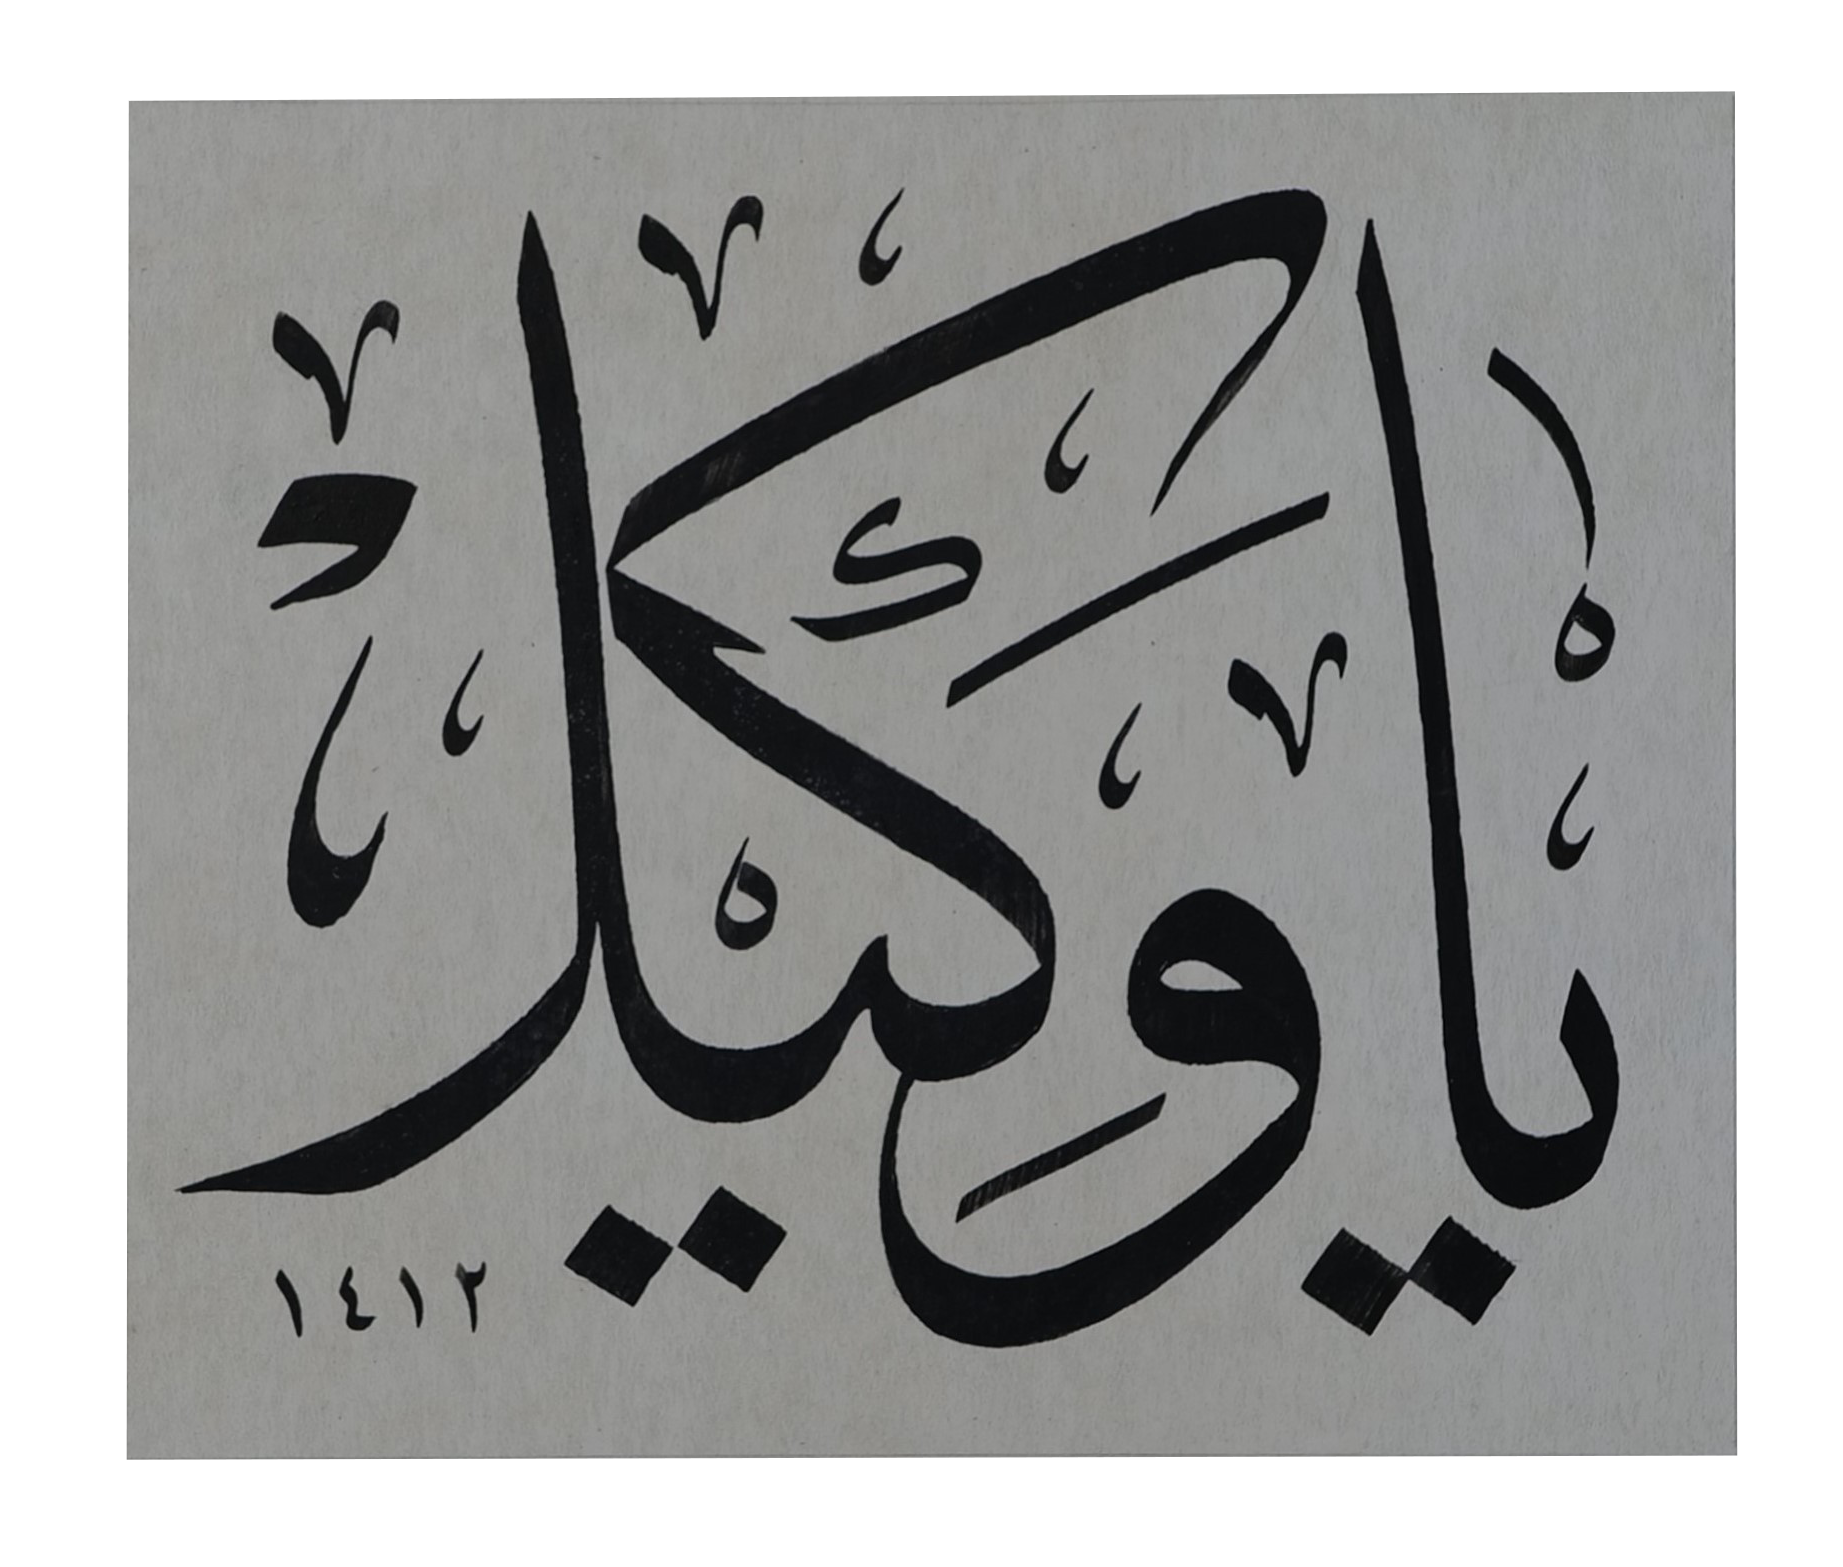 يا وكيل
١٤١٢